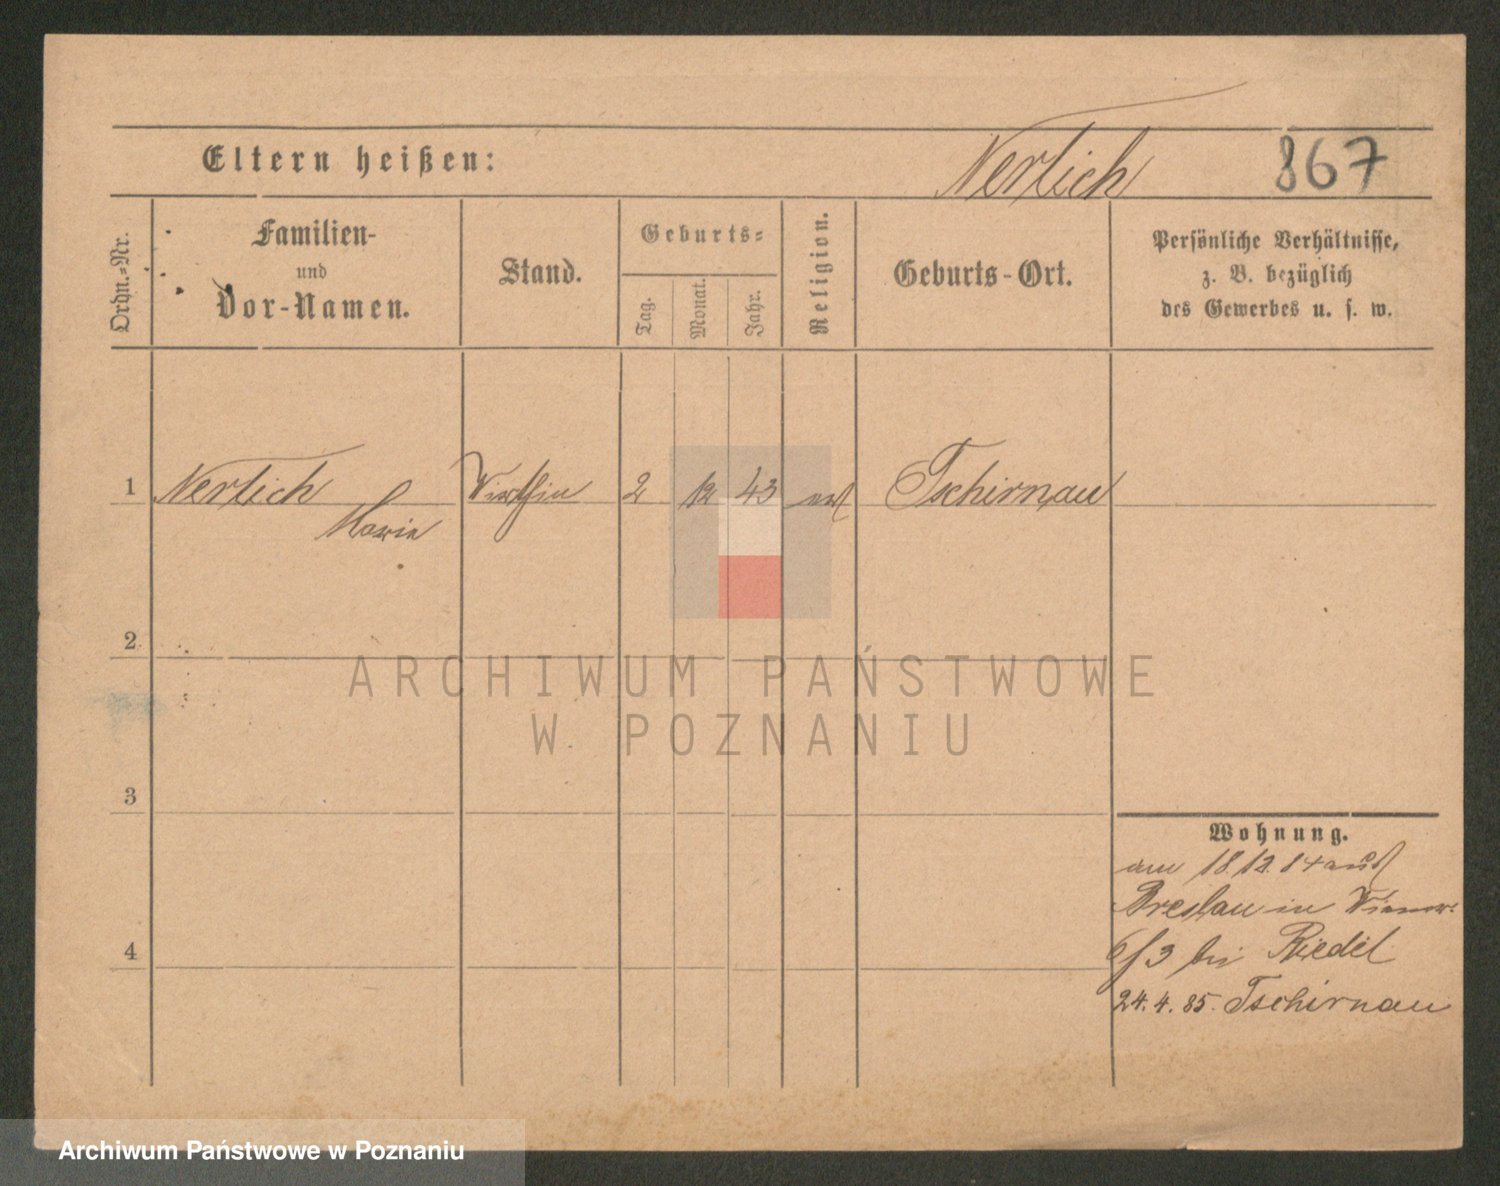 Eltern heißen:
Nerlich
867
Ordn.-Nr.
Familien-
und
Vor-Namen.
Stand.
Geburts-
Tag.
Monat.
Jahr.
Religion.
Geburts-Ort.
Persönliche Verhältnisse,
z. B. bezüglich
des Gewerbes u. s. w.
1 Nerlich Wirthin 2 12 43 Tschirnau
Marie
2
ARCHIWUM PAŃSTWOWE
W POZNANIU
3
Wohnung.
am 18.12.84 aus
Breslau in
6/3 bei Riedel
4
24.4.85. Tschirnau
Archiwum Państwowe w Poznaniu